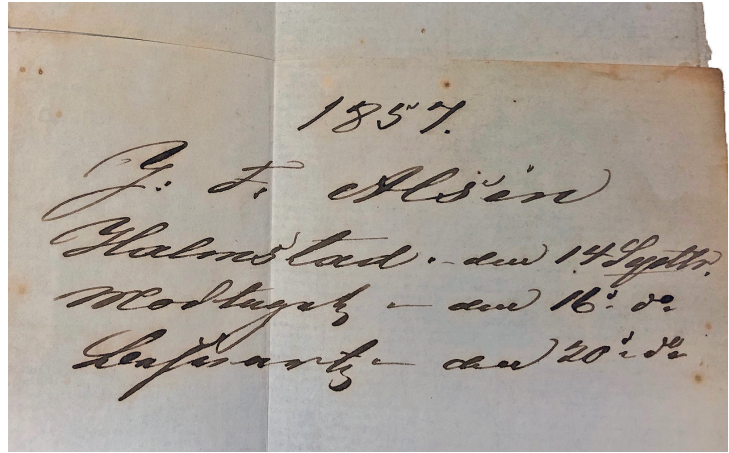 1857.
J: F. Alsin
Halmstad - den 14 Septbr.
Modtaget - den 16: do
Besvaret - den 20: do